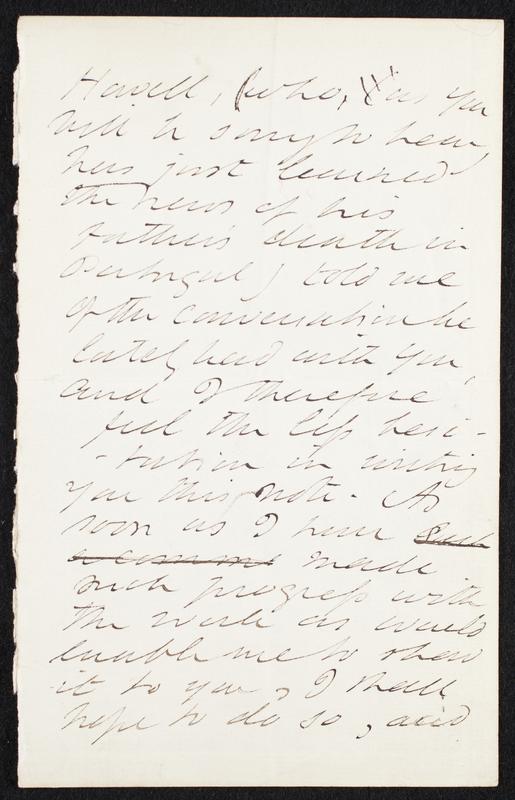 Howell, (who, as you
will be sorry to hear,
has just learned
the news of his
father's death in
Portugal) told me
of the conversation he
lately had with you,
and I therefore
feel the less hesi-
-tation in writing
you this note. As
soon as I have such
a comm made
such progress with
the work as would
enable me to show
it to you, I shall
hope to do so, and